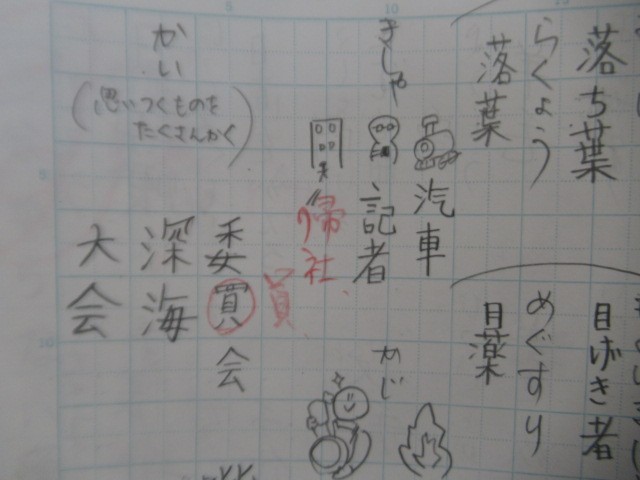 落ち葉
らくよう
落葉
目げき者
めぐすり
目薬
汽車
きしゃ
記者
帰社
かじ
委買会
員
かい
(思いつくものを
たくさんかく)
深海
大会
5
10
5
10